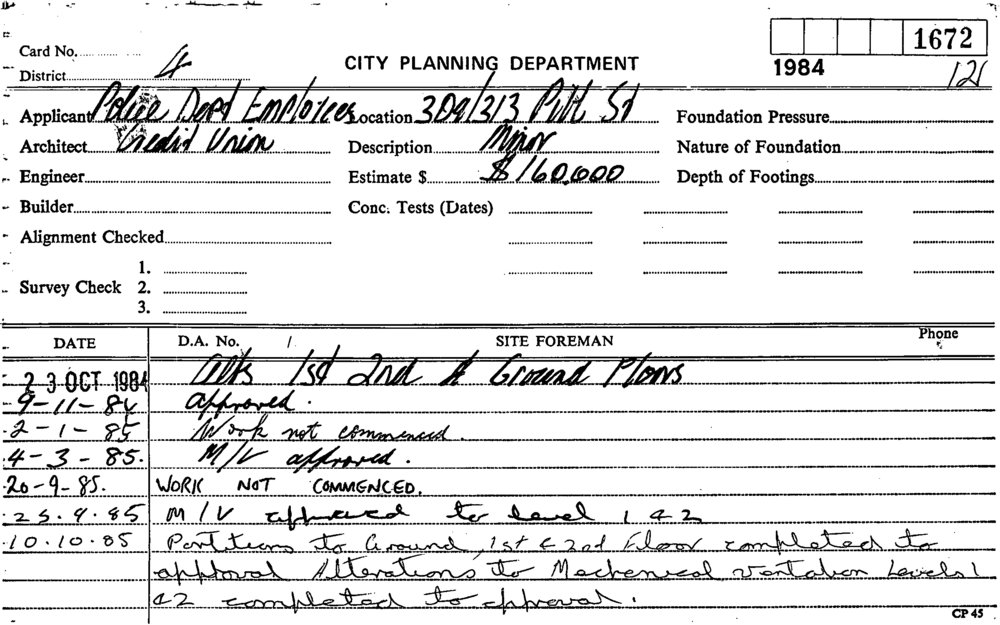 1672
Card No.
CITY PLANNING DEPARTMENT
1984
121
District 4
Applicant Police Dept Employees Location 309/313 Pitt St Foundation Pressure
Architect Credit Union Description Minor Nature of Foundation
Engineer Estimate $ $160,000 Depth of Footings
Builder Conc. Tests (Dates)
Alignment Checked
1.
Survey Check 2.
3.
DATE D.A. No. / SITE FOREMAN Phone
23 OCT 1984 Alts 1st 2nd & Ground Floors
9-11-84 approved.
2-1-85 Work not commenced.
4-3-85. M/V approved.
20-9-85. WORK NOT COMMENCED.
25.9.85 M/V approved to level 1 & 2
10.10.85 Partitions to Ground, 1st & 2nd Floor completed to
approval Alterations to Mechanical ventation Levels 1
& 2 completed to approval.
CP 45